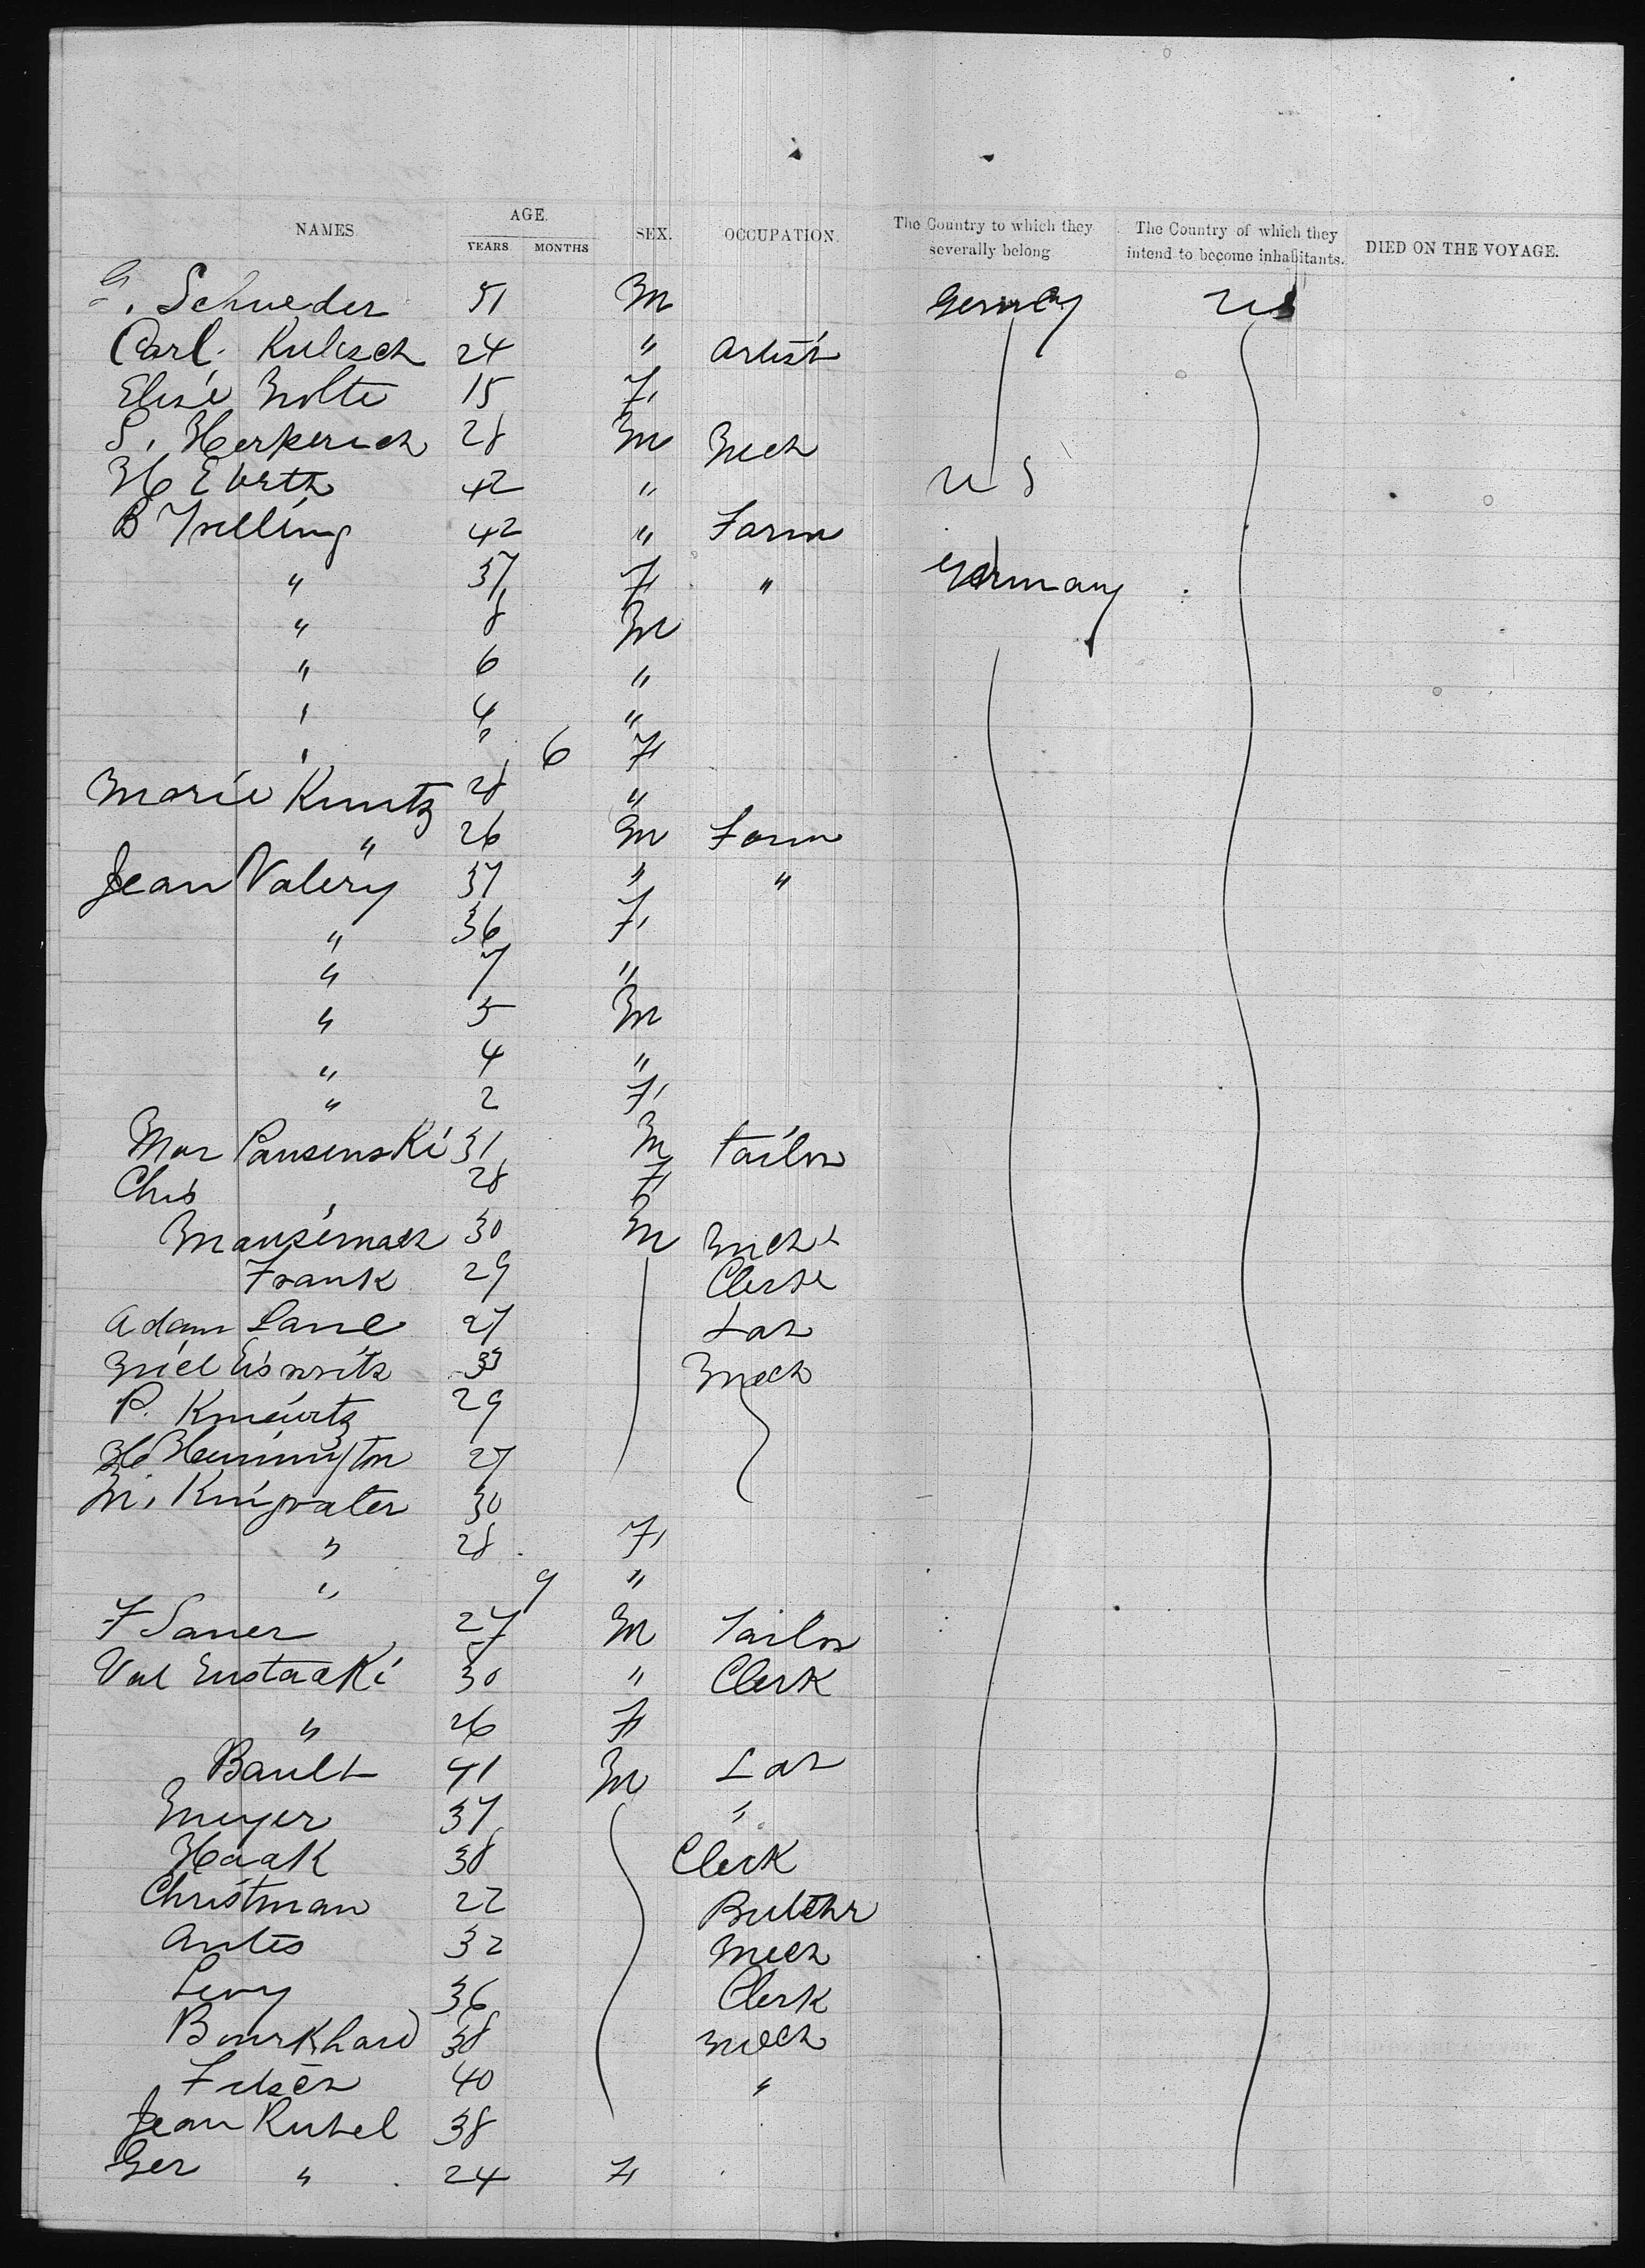 NAMES. AGE. YEARS. MONTHS SEX. OCCUPATION. The Country to which they severally belong The Country of which they intend to become inhabitants. DIED ON THE VOYAGE.
G. Schweder 51 M Germany US
Carl. Kulisch 24 " Artist
Elise Nolte 15 F
S. Herperich 28 M Mech
H Ebreth 42 " U S
B Trelling 42 " Farm
" 37 F " Germany
" 8 M
" 6 "
" 4 "
" " 6 F
Marie Kuntz 28 "
" 26 M Farm
Jean Valery 37 " "
" 36 F
" 7 "
" 5 M
" 4 "
" 2 F
Mar Pausenski 31 M Tailor
Chris " 28 F
30 M Mech
Frank 29 Clerk
Adam Lane 27 Lab
33 Mech
P. 29
H 27
M. 30
" 28 F
" 9 "
F Sauer 27 M Tailor
Val Eustacki 30 " Clerk
" 26 F
Bault 41 M Lab
Meyer 37 "
Haak 38 Clerk
Christman 22 Butchr
Antes 32 Mech
Levy 36 Clerk
Bourkhard 38 Mech
40 "
Jean Rubel 38
Ger " 24 F